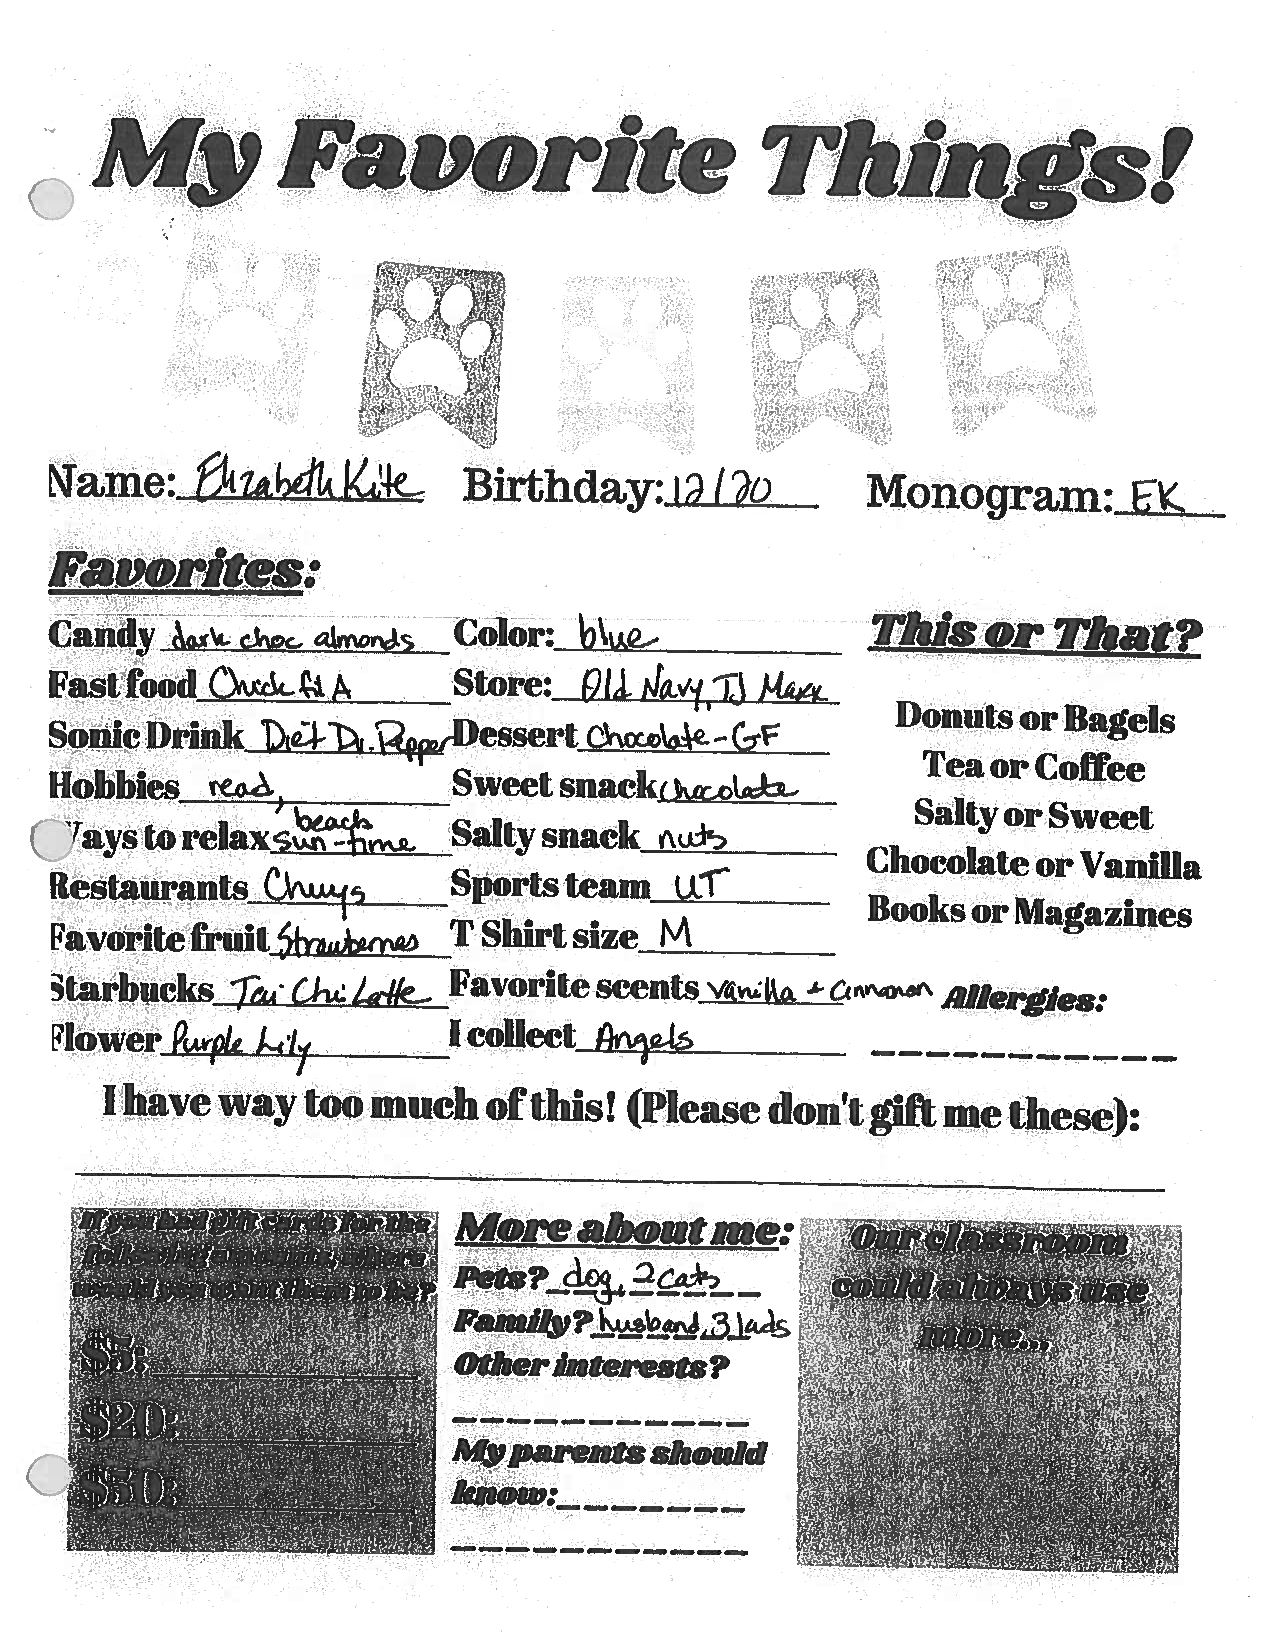 My Favorite Things!
Name: Elizabeth Kite Birthday: 12/20 Monogram: EK
Favorites:
Candy dark choc almonds Color: blue
This or That?
Fast food Chick fil A Store: Old Navy, TJ Maxx
Donuts or Bagels
Sonic Drink Diet Dr. Pepper Dessert Chocolate - GF
Tea or Coffee
Hobbies read, Sweet snack chocolate
Salty or Sweet
beach
Ways to relax sun-time Salty snack nuts
Chocolate or Vanilla
Restaurants Chuys Sports team UT
Books or Magazines
Favorite fruit Strawberries T Shirt size M
Starbucks Chi Latte Favorite scents vanilla + cinnamon Allergies:
Flower Purple Lily I collect Angels
I have way too much of this! (Please don't gift me these):
If you had gift cards for the
following amounts, where
would you want them to be?
$5:
$20:
$50:
More about me:
Pets? dog, 2 cats
Family? husband, 3 lads
Other interests?
My parents should
know:
Our classroom
could always use
more...